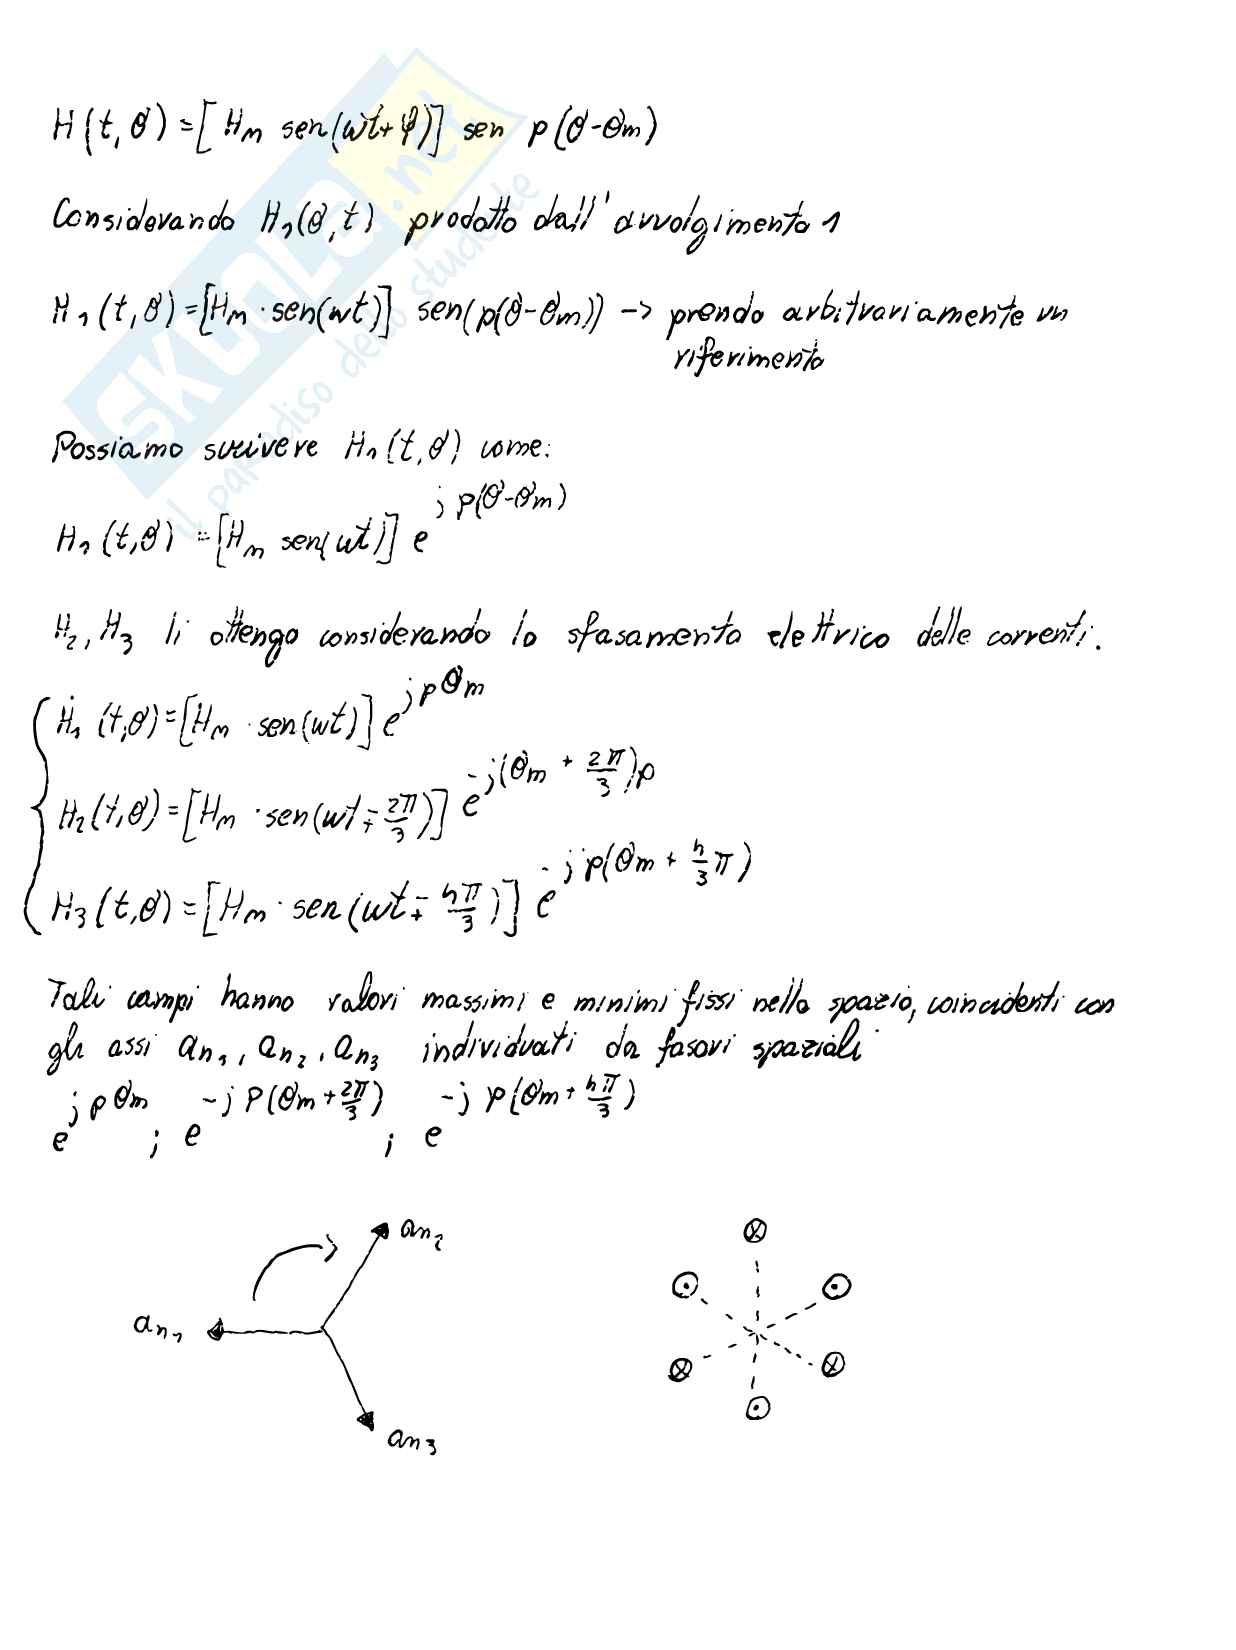 H(t,θ) = [Hm sen(ωt+φ)] sen p(θ-θm)
Considerando H1(θ,t) prodotto dall'avvolgimento 1
H1(t,θ) = [Hm · sen(ωt)] sen(p(θ-θm)) -> prendo arbitrariamente un
riferimento
Possiamo scrivere H1(t,θ) come:
H1(t,θ) = [Hm sen(ωt)] e^{jp(θ-θm)}
H2, H3 li ottengo considerando lo sfasamento elettrico delle correnti.
Ḣ1(t,θ) = [Hm · sen(ωt)] e^{jpθm}
H2(t,θ) = [Hm · sen(ωt ∓ 2π/3)] e^{-j(θm + 2π/3)p}
H3(t,θ) = [Hm · sen(ωt ∓ 4π/3)] e^{-jp(θm + 4/3 π)}
Tali campi hanno valori massimi e minimi fissi nello spazio, coincidenti con
gli assi an1, an2, an3 individuati da fasori spaziali
e^{jpθm}; e^{-jp(θm + 2π/3)}; e^{-jp(θm + 4π/3)}
an2
an1
an3
SKUOLA.net
il paradiso dello studente